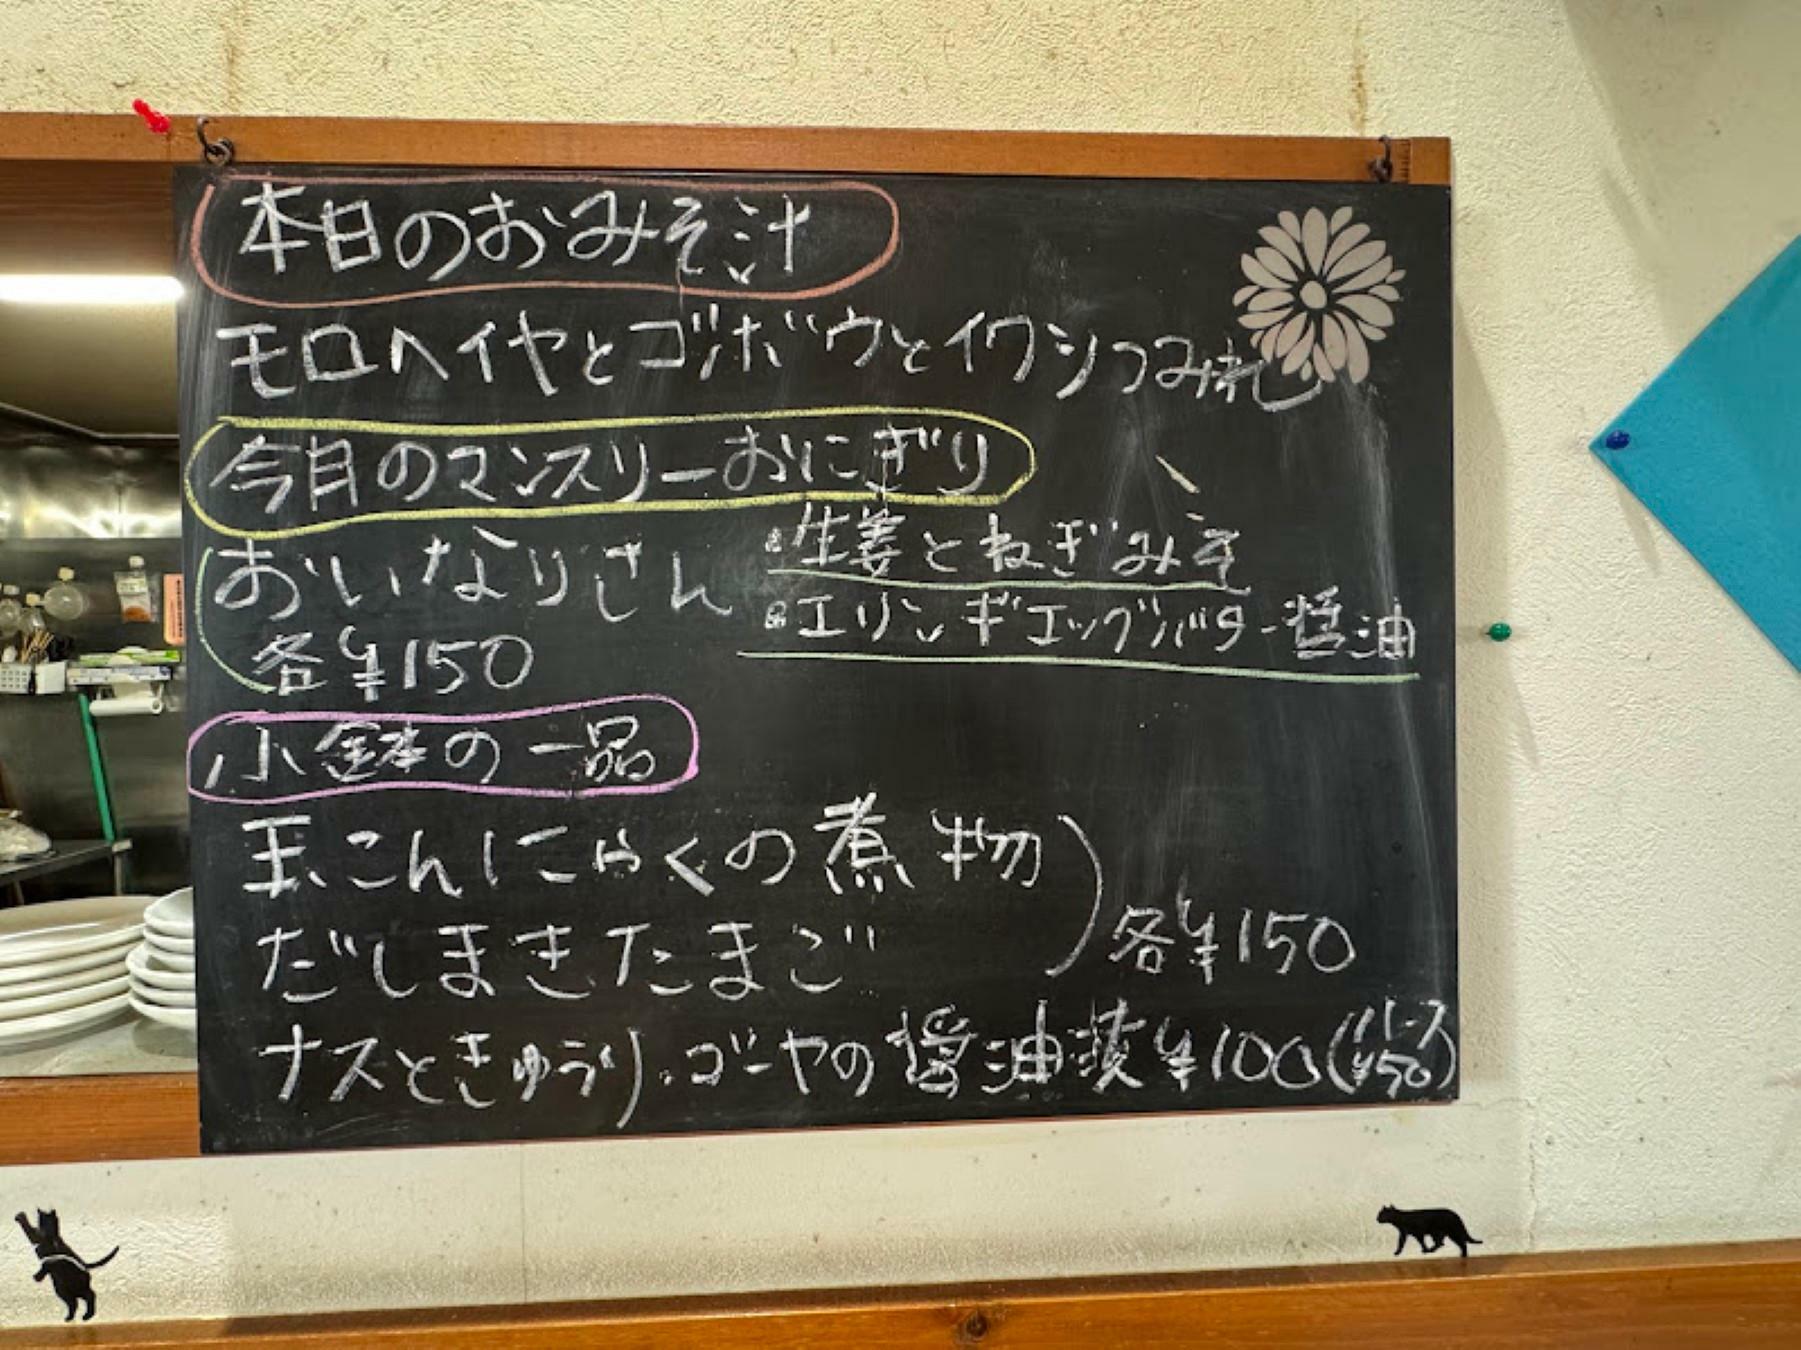 本日のおみそ汁
モロヘイヤとゴボウとイワシつみれ
今月のマンスリーおにぎり
おいなりさん
各¥150
生姜とねぎみそ
エリンギエッグバター醤油
小鉢の一品
玉こんにゃくの煮物
だしまきたまご
各¥150
ナスときゅうり・ゴーヤの醤油漬¥100(ハーフ¥50)